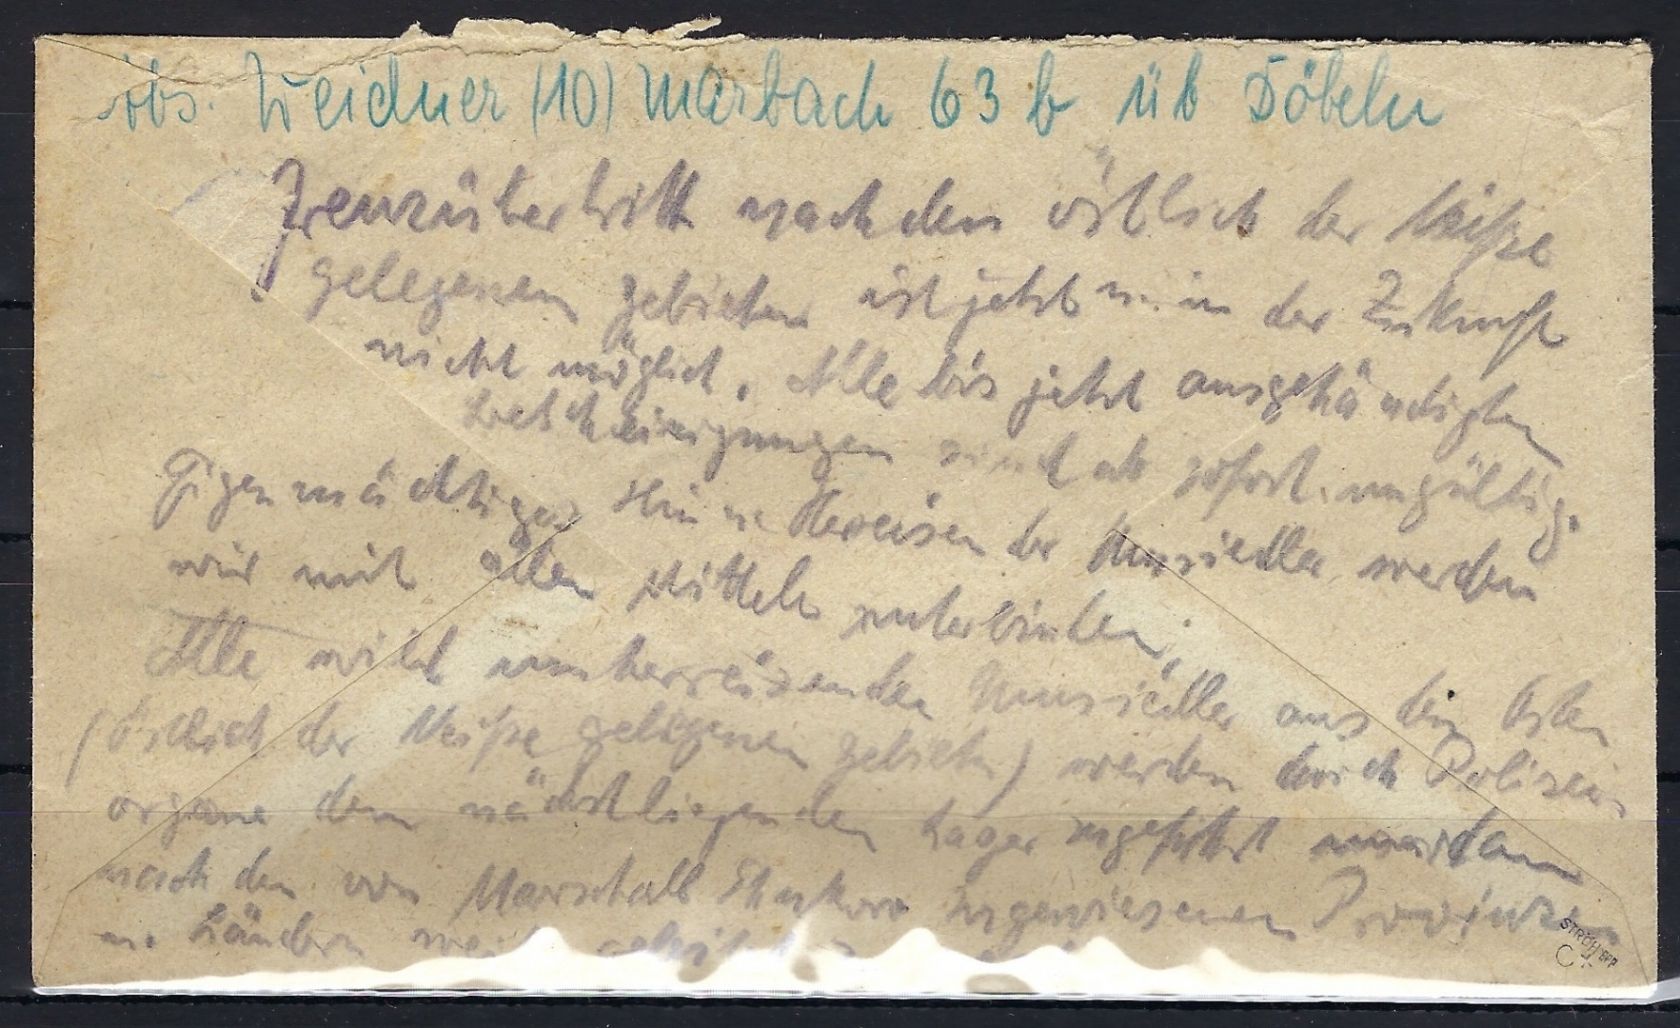 Abs. Weidner (10) Marbach 63 b üb Döbeln
Grenzübertritt nach den östlich der Neiße
gelegenen Gebieten ist jetzt u. in der Zukunft
nicht möglich. Alle bis jetzt ausgehändigten
Bescheinigungen sind ab sofort ungültig.
Eigenmächtiges Hin u Herreisen der Umsiedler werden
wir mit allen Mitteln unterbinden.
Alle wild umherreisenden Umsiedler aus dem Osten
(östlich der Neiße gelegenen Gebieten) werden durch Polizei
organe dem nächstliegenden Lager zugeführt
nach den von Marschall Shukow zugewiesenen Provinzen
u. Ländern